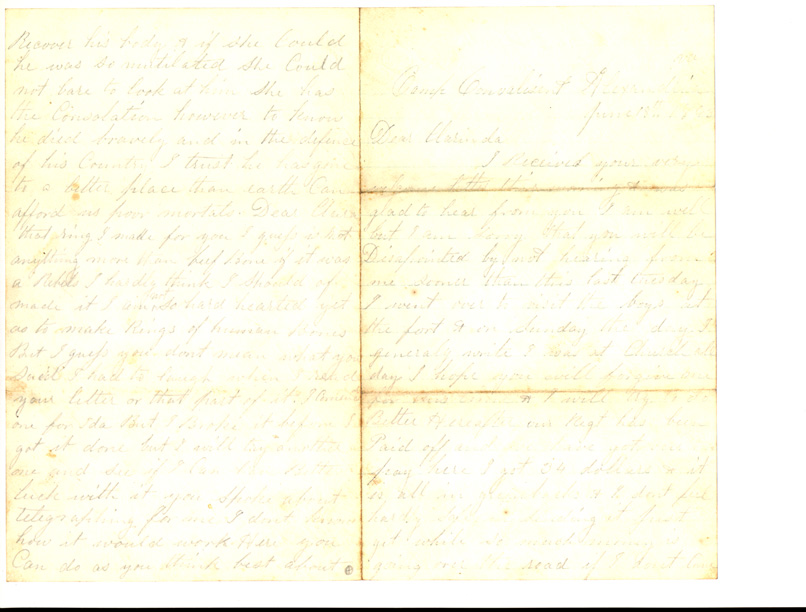 Recover his body & if she Could
he was so mutilated she Could
not bare to look at him she has
the Consolation however to know
he died bravely and in the defence
of his Country I trust he has gone
to a better place than earth Can
afford us poor mortals Dear Clara
that ring I made for you I guess is not
anything more than beef bone if it was
a Rebels I hardly think I should of
made it I am not so hard hearted yet
as to make Rings of human bones
But I guess you dont mean what you
Sued I had to laugh when I read
your letter or that part of it I
one for Ida But I Broke it before I
got it done but I will try another
one and see if I Can have better
luck with it you spoke about
telegraphing for me I dont know
how it would work Here you
Can do as you think best about
Camp Convalesent
June 18th
Dear Clarinda
I Received your very
welcome letter this morning & was
glad to hear from you I am well
but I am Sorry that you will be
Disapointed by not hearing from
me sooner than this last tuesday
I went over to visit the boys at
the fort & on Sunday the day I
generaly write I was at Church all
day I hope you will forgive me
for this once & I will try to do
Better Hereafter our Regt has been
Paid off and we have got our
pay here I got 34 dollars & it
is all in greenbacks & I dont feel
hardly safe in sending it Just
yet while so much money is
going over the road if I dont